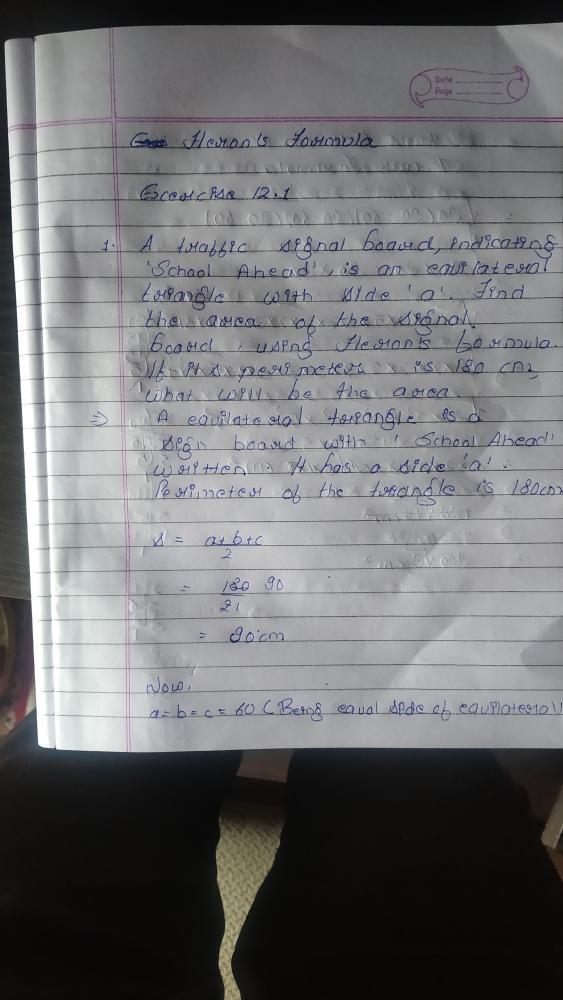 Date
Page
Heron's Formula
Exercise 12.1
1. A traffic signal board, indicating
'School Ahead', is an equilateral
triangle with side 'a'. Find
the area of the signal
board, using Heron's formula.
If its perimeter is 180 cm,
what will be the area.
⇒ A equilaterial triangle is a
sign board with 'School Ahead'
written. It has a side 'a'.
Perimeter of the triangle is 180cm
s = a+b+c
2
= 180 90
21
= 90cm
Now,
a=b=c=60 (Being equal side of equilateral